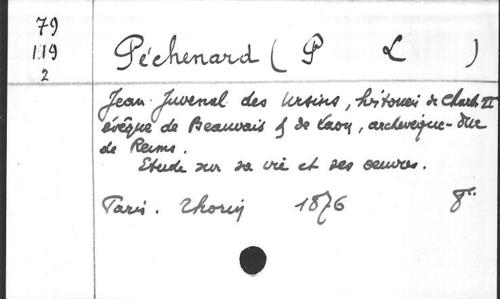 79
119
2
Péchenard ( P L )
Jean Juvenal des Ursins, historien de Charles VI
évêque de Beauvais & de Laon, archevêque-duc
de Reims.
Etude sur sa vie et ses oeuvres.
Paris. Thorin 1876 8°